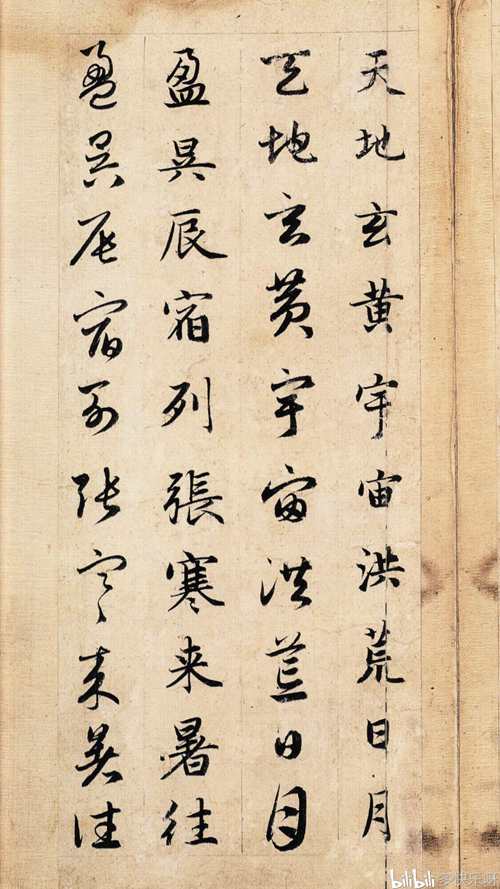 天地玄黄宇宙洪荒日月
天地玄黄宇宙洪荒日月
盈昃辰宿列張寒来暑往
盈昃辰宿列張寒来暑往
bilibili